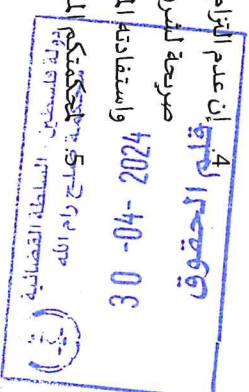 4. إن عدم التزام
صريحة لشر
واستفادته
5. لمحكمتكم
دولة فلسطين السلطة القضائية
محكمة صلح رام الله
30 -04- 2024
الحقوق